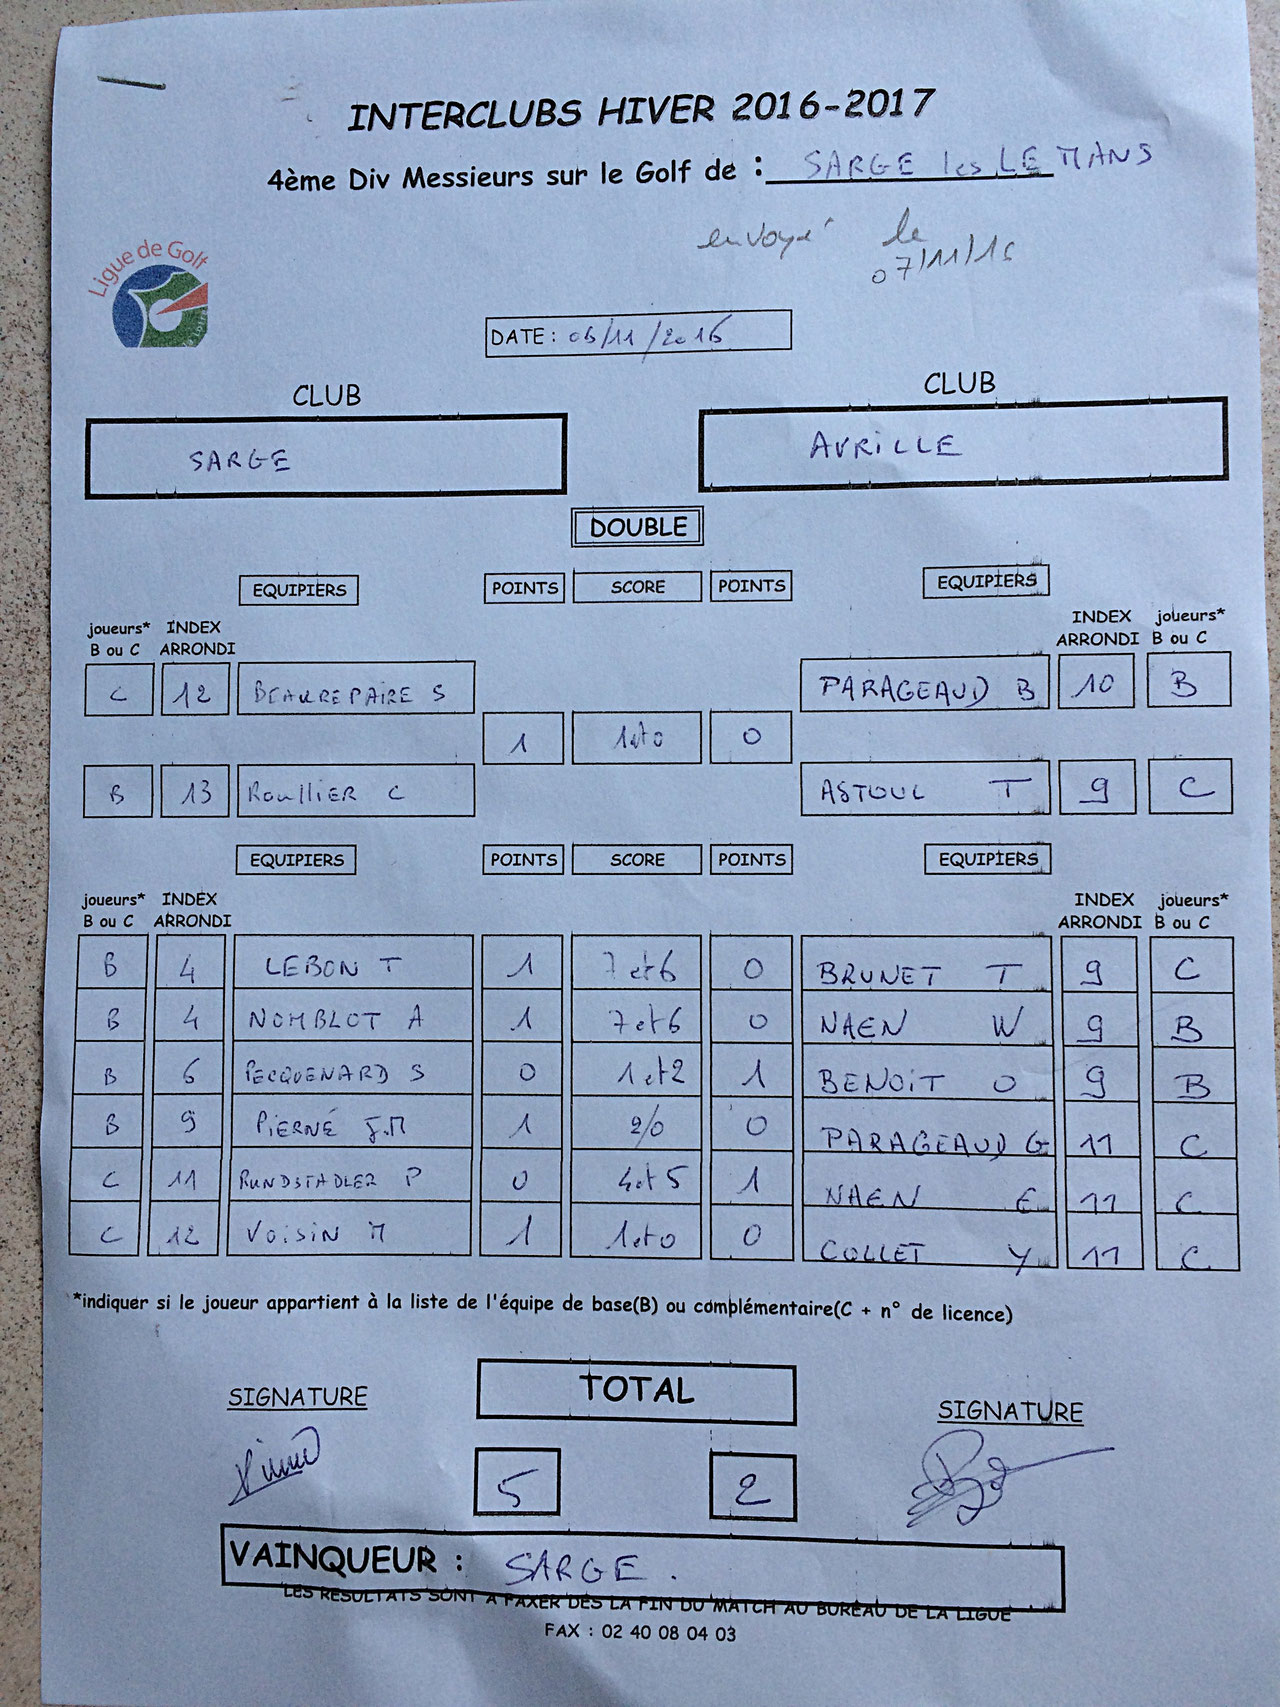 INTERCLUBS HIVER 2016-2017
4ème Div Messieurs sur le Golf de : SARGE les LE MANS
envoyé le
07/11/16
Ligue de Golf
DATE : 06/11/2016
CLUB CLUB
SARGE AVRILLE
DOUBLE
EQUIPIERS POINTS SCORE POINTS EQUIPIERS
joueurs* INDEX INDEX joueurs*
B ou C ARRONDI ARRONDI B ou C
C 12 BEAUREPAIRE S PARAGEAUD B 10 B
1 1et0 0
B 13 ROUllIER C ASTOUL T 9 C
EQUIPIERS POINTS SCORE POINTS EQUIPIERS
joueurs* INDEX INDEX joueurs*
B ou C ARRONDI ARRONDI B ou C
B 4 LEBON T 1 7 et 6 0 BRUNET T 9 C
B 4 NOMBLOT A 1 7 et 6 0 NAEN W 9 B
B 6 PECQUENARD S 0 1 et 2 1 BENOIT O 9 B
B 9 PIERNÉ J.M 1 2/0 0 PARAGEAUD G 11 C
C 11 RUNDSTADLER P 0 4et 5 1 NAEN E 11 C
C 12 VOISIN M 1 1et0 0 COLLET Y 11 C
*indiquer si le joueur appartient à la liste de l'équipe de base(B) ou complémentaire(C + n° de licence)
SIGNATURE TOTAL SIGNATURE
5 2
VAINQUEUR : SARGE.
LES RESULTATS SONT A FAXER DES LA FIN DU MATCH AU BUREAU DE LA LIGUE
FAX : 02 40 08 04 03